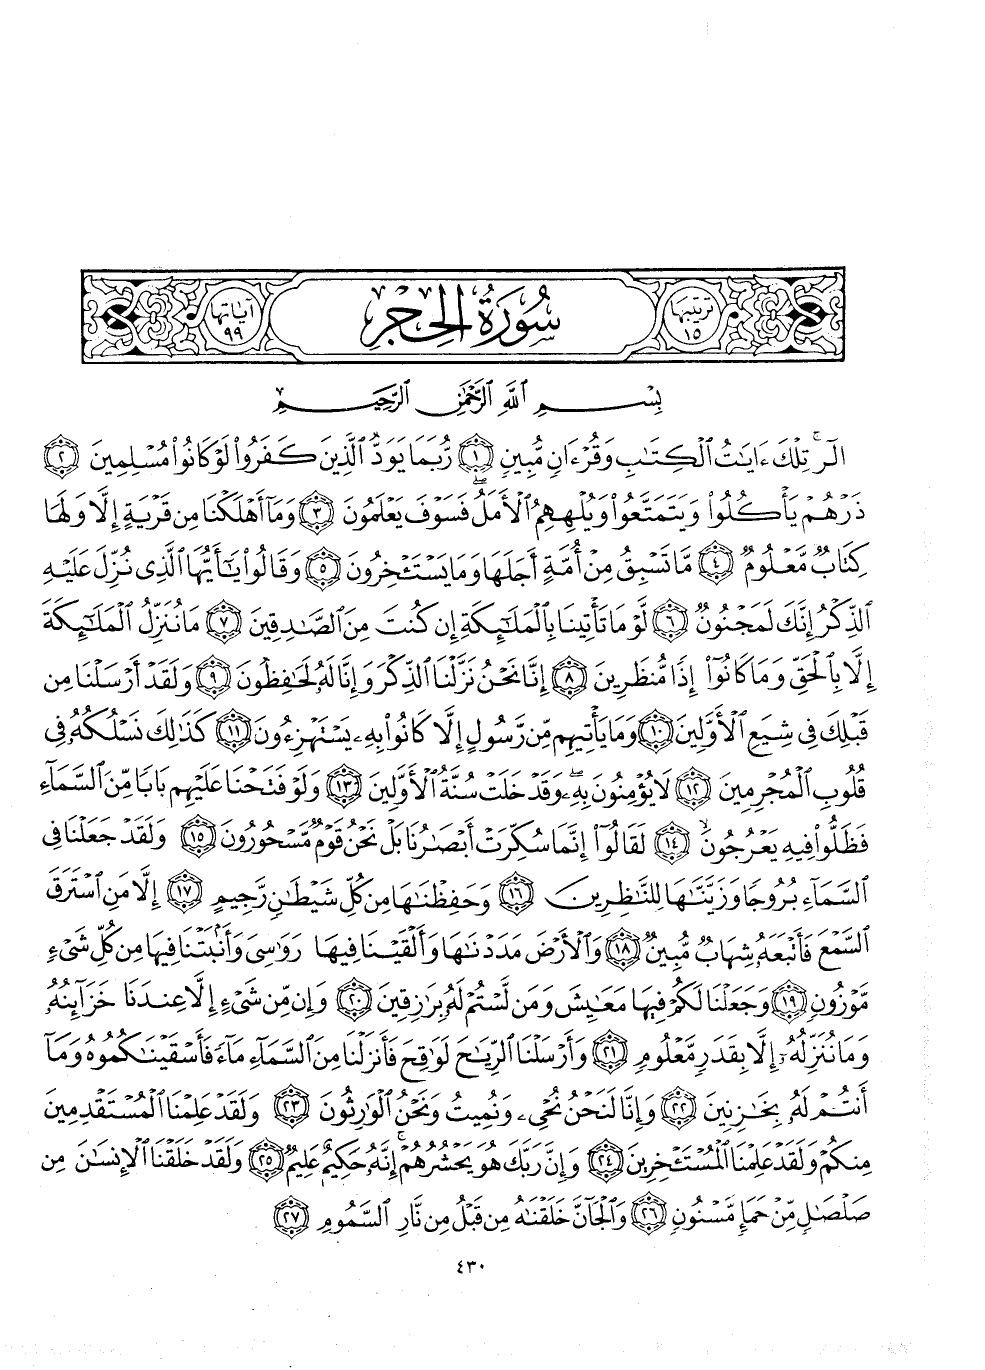 ترتيبها ١٥ سُورَةُ الحِجْرِ آياتها ٩٩
بِسْمِ ٱللَّهِ ٱلرَّحْمَٰنِ ٱلرَّحِيمِ
الٓرۚ تِلْكَ ءَايَٰتُ ٱلْكِتَٰبِ وَقُرْءَانٍ مُّبِينٍ ١ رُّبَمَا يَوَدُّ ٱلَّذِينَ كَفَرُوا۟ لَوْ كَانُوا۟ مُسْلِمِينَ ٢
ذَرْهُمْ يَأْكُلُوا۟ وَيَتَمَتَّعُوا۟ وَيُلْهِهِمُ ٱلْأَمَلُ ۖ فَسَوْفَ يَعْلَمُونَ ٣ وَمَآ أَهْلَكْنَا مِن قَرْيَةٍ إِلَّا وَلَهَا
كِتَابٌ مَّعْلُومٌ ٤ مَّا تَسْبِقُ مِنْ أُمَّةٍ أَجَلَهَا وَمَا يَسْتَـْٔخِرُونَ ٥ وَقَالُوا۟ يَٰٓأَيُّهَا ٱلَّذِى نُزِّلَ عَلَيْهِ
ٱلذِّكْرُ إِنَّكَ لَمَجْنُونٌ ٦ لَّوْ مَا تَأْتِينَا بِٱلْمَلَٰٓئِكَةِ إِن كُنتَ مِنَ ٱلصَّٰدِقِينَ ٧ مَا نُنَزِّلُ ٱلْمَلَٰٓئِكَةَ
إِلَّا بِٱلْحَقِّ وَمَا كَانُوٓا۟ إِذًا مُّنظَرِينَ ٨ إِنَّا نَحْنُ نَزَّلْنَا ٱلذِّكْرَ وَإِنَّا لَهُۥ لَحَٰفِظُونَ ٩ وَلَقَدْ أَرْسَلْنَا مِن
قَبْلِكَ فِى شِيَعِ ٱلْأَوَّلِينَ ١٠ وَمَا يَأْتِيهِم مِّن رَّسُولٍ إِلَّا كَانُوا۟ بِهِۦ يَسْتَهْزِءُونَ ١١ كَذَٰلِكَ نَسْلُكُهُۥ فِى
قُلُوبِ ٱلْمُجْرِمِينَ ١٢ لَا يُؤْمِنُونَ بِهِۦ ۖ وَقَدْ خَلَتْ سُنَّةُ ٱلْأَوَّلِينَ ١٣ وَلَوْ فَتَحْنَا عَلَيْهِم بَابًا مِّنَ ٱلسَّمَآءِ
فَظَلُّوا۟ فِيهِ يَعْرُجُونَ ١٤ لَقَالُوٓا۟ إِنَّمَا سُكِّرَتْ أَبْصَٰرُنَا بَلْ نَحْنُ قَوْمٌ مَّسْحُورُونَ ١٥ وَلَقَدْ جَعَلْنَا فِى
ٱلسَّمَآءِ بُرُوجًا وَزَيَّنَّٰهَا لِلنَّٰظِرِينَ ١٦ وَحَفِظْنَٰهَا مِن كُلِّ شَيْطَٰنٍ رَّجِيمٍ ١٧ إِلَّا مَنِ ٱسْتَرَقَ
ٱلسَّمْعَ فَأَتْبَعَهُۥ شِهَابٌ مُّبِينٌ ١٨ وَٱلْأَرْضَ مَدَدْنَٰهَا وَأَلْقَيْنَا فِيهَا رَوَٰسِىَ وَأَنۢبَتْنَا فِيهَا مِن كُلِّ شَىْءٍ
مَّوْزُونٍ ١٩ وَجَعَلْنَا لَكُمْ فِيهَا مَعَٰيِشَ وَمَن لَّسْتُمْ لَهُۥ بِرَٰزِقِينَ ٢٠ وَإِن مِّن شَىْءٍ إِلَّا عِندَنَا خَزَآئِنُهُۥ
وَمَا نُنَزِّلُهُۥٓ إِلَّا بِقَدَرٍ مَّعْلُومٍ ٢١ وَأَرْسَلْنَا ٱلرِّيَٰحَ لَوَٰقِحَ فَأَنزَلْنَا مِنَ ٱلسَّمَآءِ مَآءً فَأَسْقَيْنَٰكُمُوهُ وَمَآ
أَنتُمْ لَهُۥ بِخَٰزِنِينَ ٢٢ وَإِنَّا لَنَحْنُ نُحْىِۦ وَنُمِيتُ وَنَحْنُ ٱلْوَٰرِثُونَ ٢٣ وَلَقَدْ عَلِمْنَا ٱلْمُسْتَقْدِمِينَ
مِنكُمْ وَلَقَدْ عَلِمْنَا ٱلْمُسْتَـْٔخِرِينَ ٢٤ وَإِنَّ رَبَّكَ هُوَ يَحْشُرُهُمْ ۚ إِنَّهُۥ حَكِيمٌ عَلِيمٌ ٢٥ وَلَقَدْ خَلَقْنَا ٱلْإِنسَٰنَ مِن
صَلْصَٰلٍ مِّنْ حَمَإٍ مَّسْنُونٍ ٢٦ وَٱلْجَآنَّ خَلَقْنَٰهُ مِن قَبْلُ مِن نَّارِ ٱلسَّمُومِ ٢٧
٤٣٠